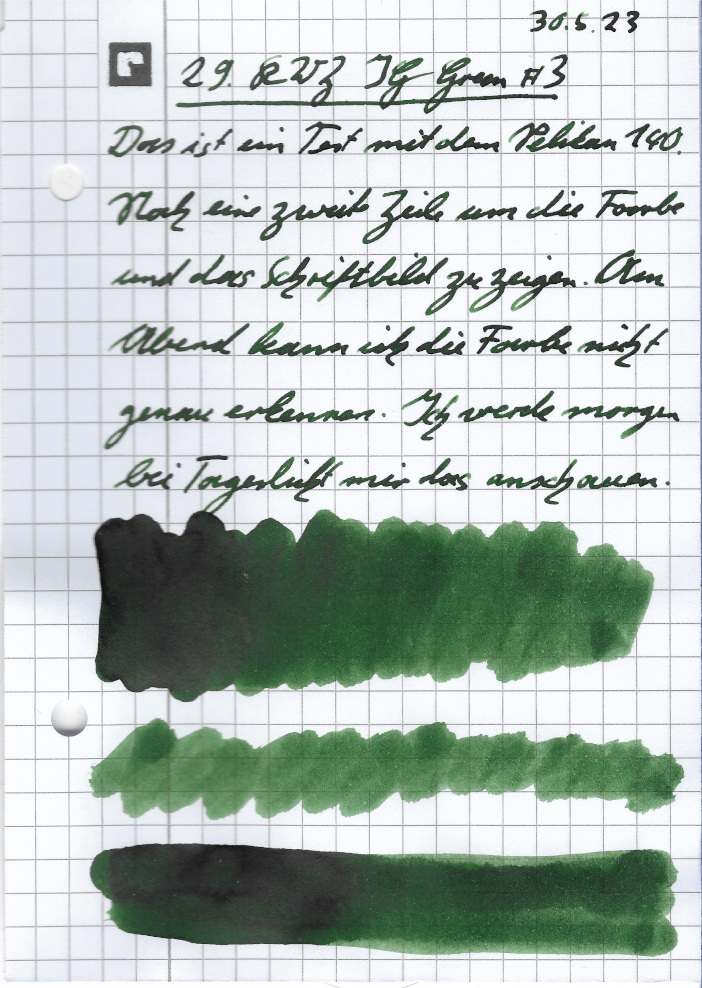 30.5.23
29. RWZ IG Green #3
Das ist ein Test mit dem Pelikan 140.
Noch eine zweite Zeile um die Farbe
und das Schriftbild zu zeigen. Am
Abend kann ich die Farbe nicht
genau erkennen. Ich werde morgen
bei Tageslicht mir das anschauen.